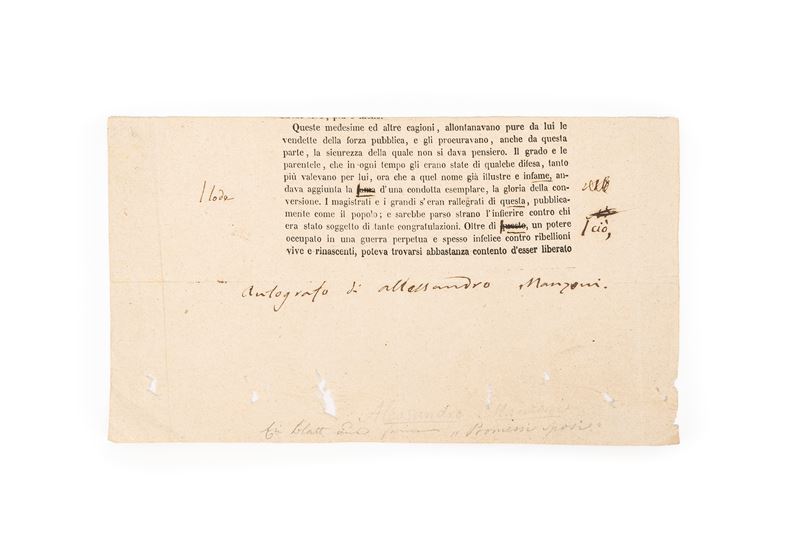 Queste medesime ed altre cagioni, allontanavano pure da lui le
vendette della forza pubblica, e gli procuravano, anche da questa
parte, la sicurezza della quale non si dava pensiero. Il grado e le
parentele, che in ogni tempo gli erano state di qualche difesa, tanto
più valevano per lui, ora che a quel nome già illustre e infame, an-
dava aggiunta la fama d'una condotta esemplare, la gloria della con-
loda
versione. I magistrati e i grandi s'eran rallegrati di questa, pubblica-
mente come il popolo; e sarebbe parso strano l'infierire contro chi
era stato soggetto di tante congratulazioni. Oltre di questo, un potere
ciò,
occupato in una guerra perpetua e spesso infelice contro ribellioni
vive e rinascenti, poteva trovarsi abbastanza contento d'esser liberato
Autografo di Allessandro Manzoni.
Alessandro Manzoni
Ein Blatt aus "Promessi sposi"